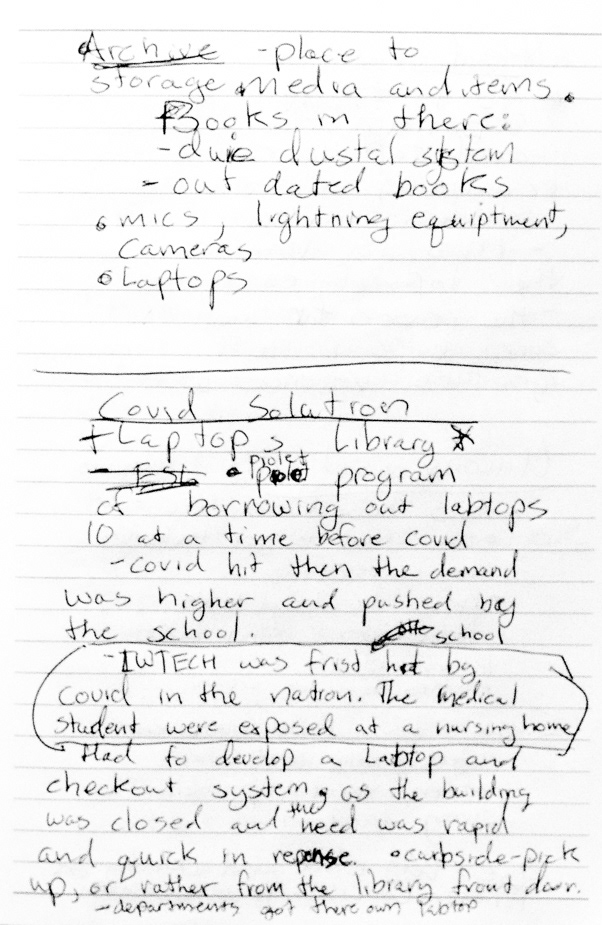 Archive - place to
storage media and items.
Books in there:
- duie dustal system
- out dated books
• mics, lightning equiptment,
cameras
• Laptops
Covid Solution
+ Laptops Library *
- ESL • piolet program
of borrowing out labtops
10 at a time before covid
- covid hit then the demand
was higher and pushed by
the school.
school
- IWTECH was frist hit by
covid in the nation. The medical
student were exposed at a nursing home
- Had to develop a Labtop and
checkout system, as the building
was closed and the need was rapid
and quick in reponse. • curbside-pick
up, or rather from the library front door.
- departments got there own labtop